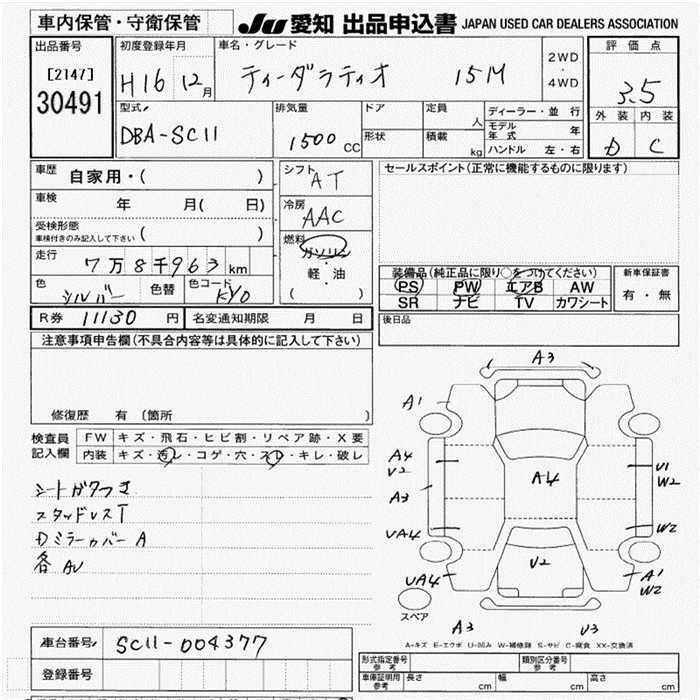 車内保管・守衛保管 JU 愛知 出品申込書 JAPAN USED CAR DEALERS ASSOCIATION
出品番号 初度登録年月 車名・グレード 2WD・4WD 評価点
[2147] 30491 H16 12月 ティーダラティオ 15M 3.5
型式 排気量 ドア 定員 人 ディーラー・並行 外装 内装
DBA-SC11 1500cc 形状 積載 kg モデル年式 年 D C
ハンドル 左・右
車歴 自家用・( ) シフト AT セールスポイント(正常に機能するものに限ります)
車検 年 月( 日) 冷房 AAC
受検形態 車検付きのみ記入して下さい ( )
燃料 ガソリン・軽・油 ( )
走行 7万8千963km 装備品(純正品に限り○をつけてください) 新車保証書
色 シルバー 色替 色コード KYO PS PW エアB AW 有・無
SR ナビ TV カワシート
R券 11130円 名変通知期限 月 日 後日品
注意事項申告欄(不具合内容等は具体的に記入して下さい)
修復歴 有 〔箇所 〕
検査員記入欄 FW キズ・飛石・ヒビ割・リペア跡・X要
内装 キズ・汚レ・コゲ・穴・スレ・キレ・破レ
スタッドレスT
Dミラーカバー A
各AU
A3
A1
A4
U2
A3
A4
U1
W2
UA4
W2
U2
UA4
A1
W2
スペア
A3 U3
A-キズ E-エクボ U-凹み W-補修跡 S-サビ C-腐食 XX-交換済
車台番号 SC11-004377
登録番号
形式指定番号 参考 類別区分番号 参考
車庫証明用 参考 長さ cm 幅 cm 高さ cm